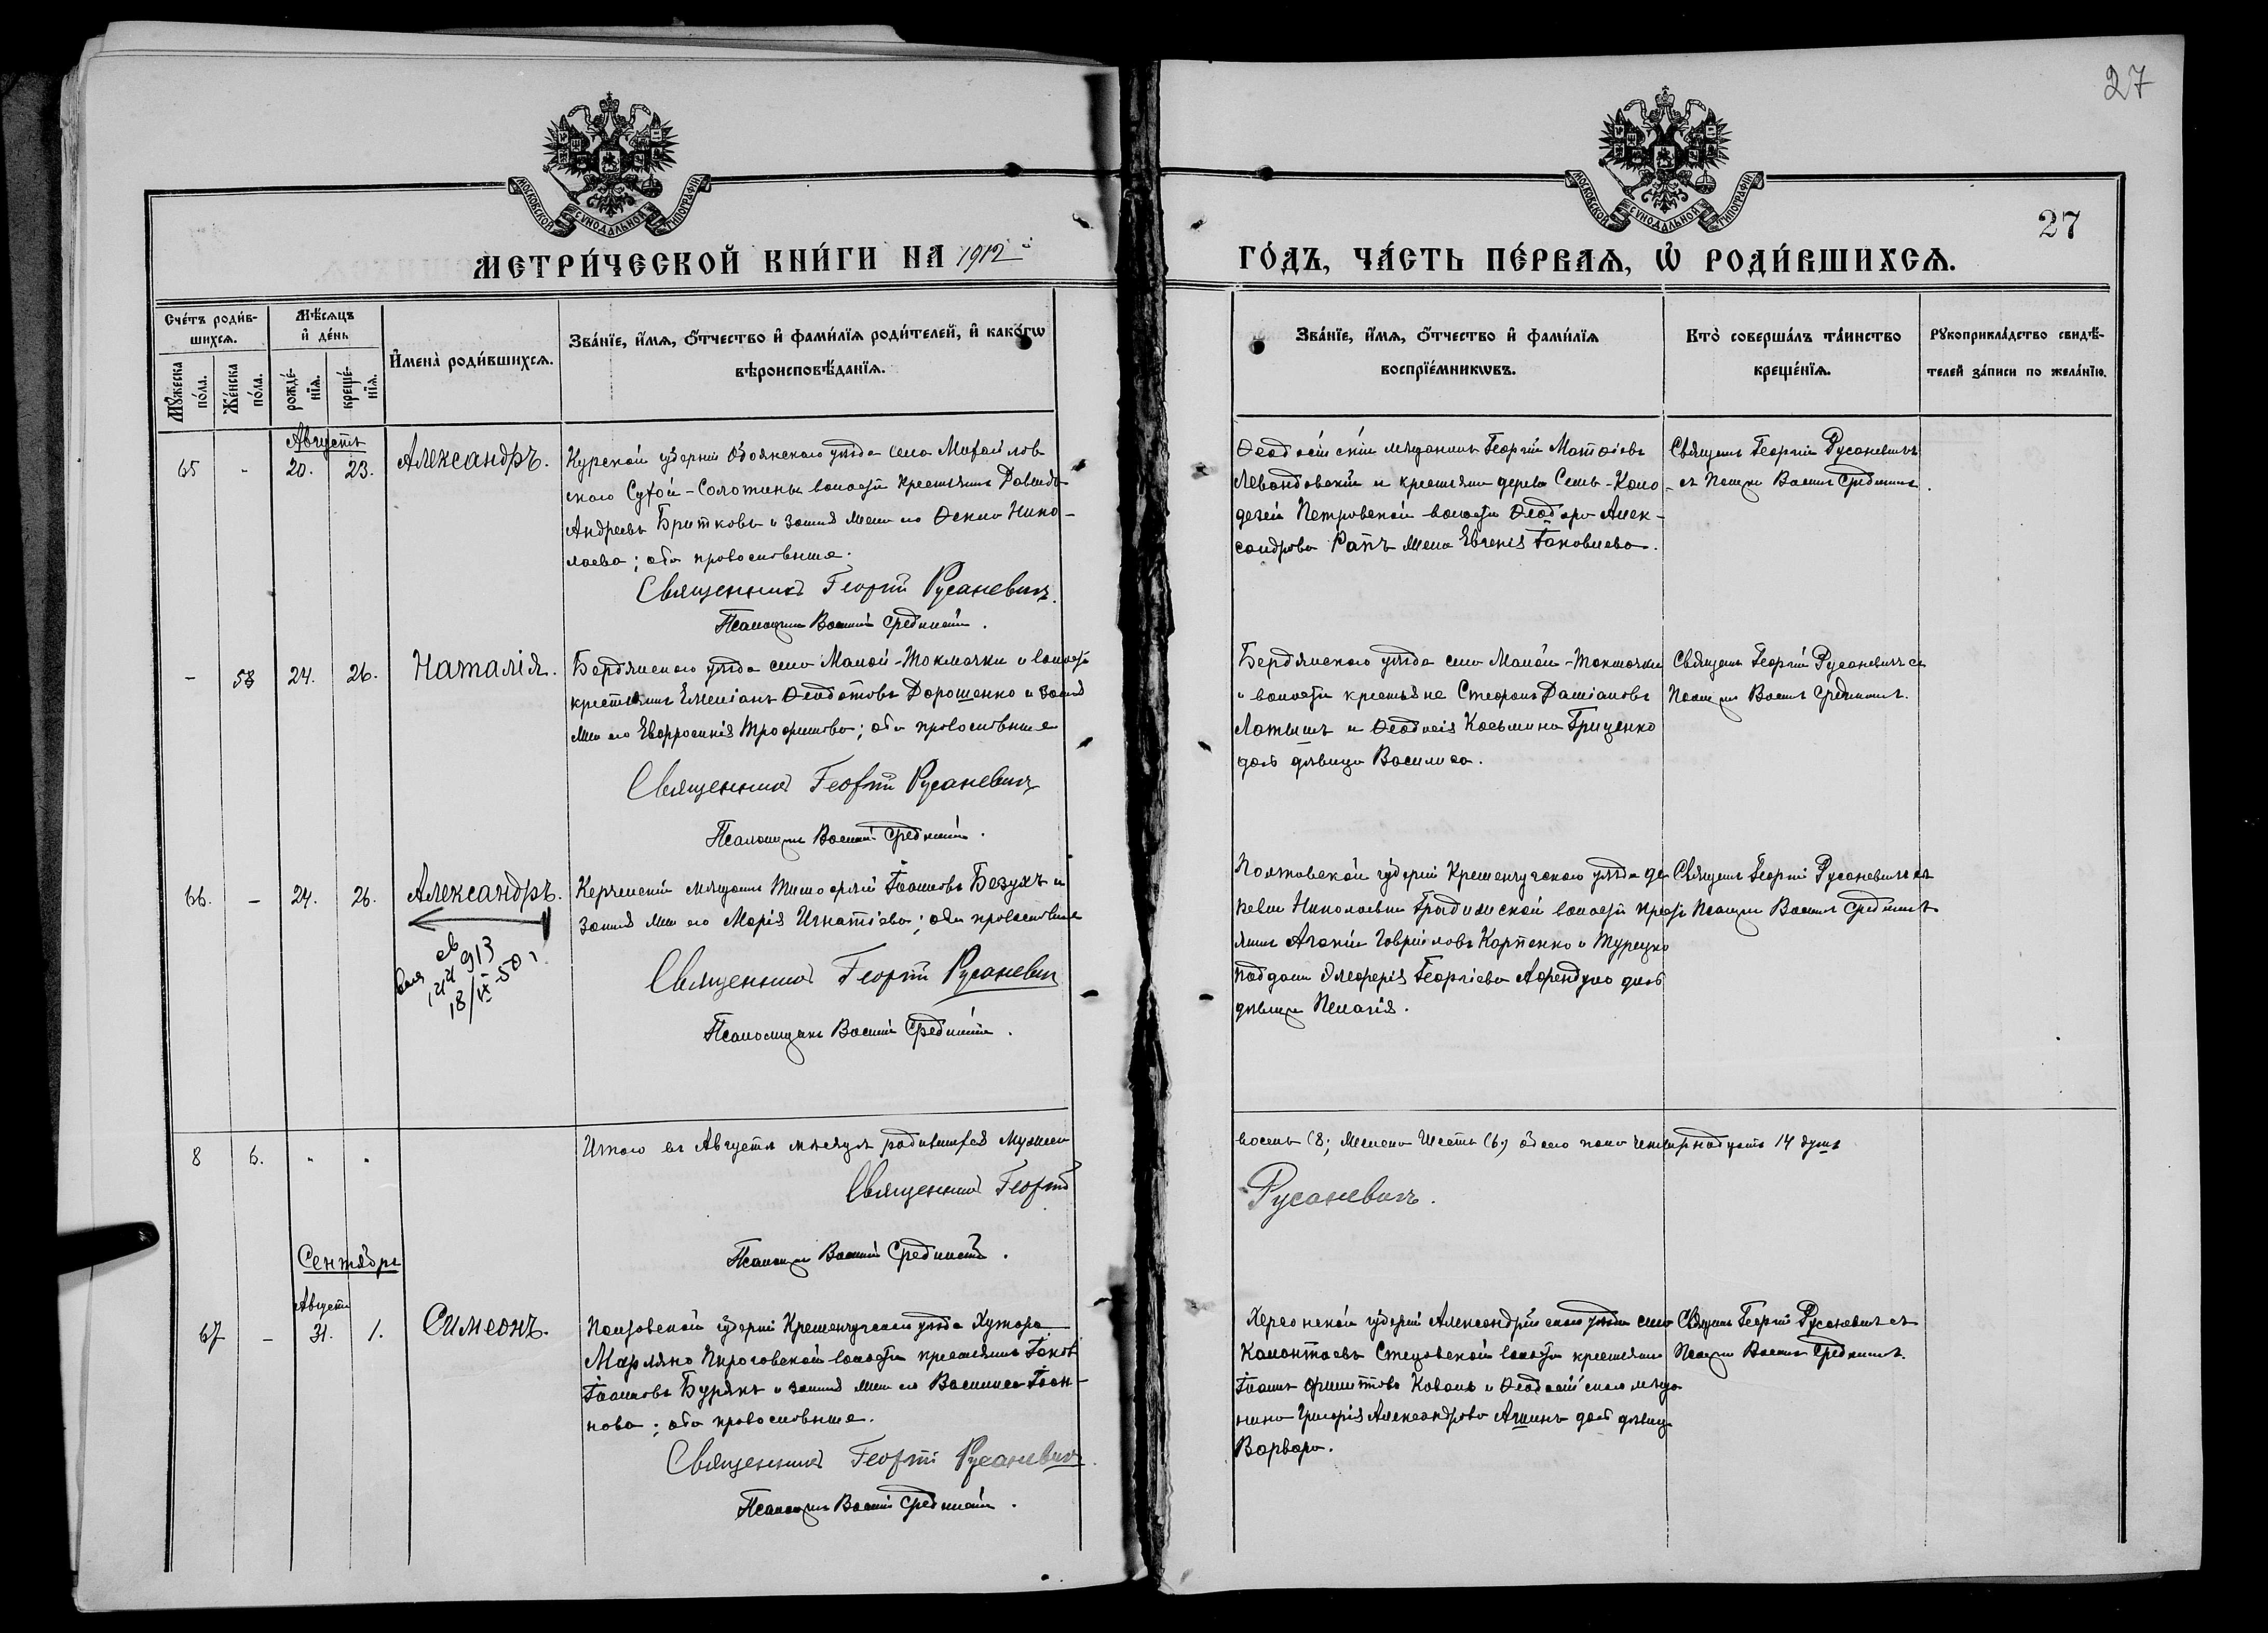 27
МОСКОВСКОЙ СѴНОДАЛЬНОЙ ТИПОГРАФІИ
МОСКОВСКОЙ СѴНОДАЛЬНОЙ ТИПОГРАФІИ
27
МЕТРИ́ЧЕСКОЙ КНИ́ГИ НА 1912
ГО́ДЪ, ЧА́СТЬ ПЕ́РВАѦ, Ѡ҆ РОДИ́ВШИХСѦ.
Сче́тъ роди́в-
шихсѧ.
Мꙋ́жеска по́ла.
Же́нска по́ла.
Мѣ́сѧцъ
и҆ де́нь
рожде́-
нїѧ.
креще́-
нїѧ.
И҆мена̀ роди́вшихсѧ.
Зва́нїе, и҆́мѧ, ѻ҆́тчество и҆ фами́лїѧ роди́телей, и҆ како́гѡ
вѣроисповѣ́данїѧ.
Зва́нїе, и҆́мѧ, ѻ҆́тчество и҆ фами́лїѧ
воспрїе́мникѡвъ.
Кто̀ соверша́лъ та́инство
креще́нїѧ.
Рꙋкоприкла́дство свидѣ́-
телей за́писи по жела́нїю.
Августъ
65 - 20. 23. Александръ.
Курской губерніи Обоянского уѣзда села Михайлов
ского Сухой-Солотины волости крестьянинъ Давидъ
Андреевъ Бритковъ и законная жена его Ѳекла Нико-
лаева; оба православные.
Священникъ Георгій Русаневичъ.
Псаломщикъ Василій Средницкій.
Ѳеодосійскій мѣщанинъ Георгій Матѳіевъ
Левандовскій и крестьянина деревни Семь-Коло
дезей Петровской волости Ѳеодора Алек-
сандрова Рапъ жена Евгенія Іаковлева.
Священ Георгій Русаневичъ
съ Псаломщ Василіемъ
- 58 24. 26. Наталія.
Бердянского уѣзда села Малой-Токмачки и волости
крестьянинъ Емеліанъ Ѳеодотовъ Дорошенко и законная
жена его Евфросинія Трофимова; оба православные
Священникъ Георгій Русаневичъ
Псаломщикъ Василій Средницкій.
Бердянского уѣзда села Малой-Токмачки
и волости крестьяне Стефанъ Даміановъ
Латышъ и Ѳеодосія Косьмина Гриценко
дочь дѣвица Василиса.
Священ Георгій Русаневичъ съ
Псаломщ Василіемъ
66. - 24. 26. Александръ.
св
913
18/VI-50 г.
Керченскій мѣщанинъ Тимоѳей Іоанновъ Безухъ и
законная жена его Марія Игнатіева; оба православные
Священникъ Георгій Русаневичъ
Псаломщикъ Василій Средницкій.
Полтавской губерніи Кременчугского уѣзда де
ревни Николаевки Градижской волости крест
янинъ Агапій Гавріиловъ Карпенко и Турецко
поддан Елефѳерія Георгіева Афендула дочь
дѣвица Пелагія.
Священ Георгій Русаневичъ съ
Псаломщ Василіемъ
8 6. " "
Итого въ Августѣ мѣсяцѣ родившихся мужеска
восемь (8; Женска Шесть (6.) обоего пола Четырнадцать 14 душъ
Священникъ Георгій
Русаневичъ.
Псаломщикъ Василій Средницкій.
Сентябрь
Августа
67 - 31. 1. Симеонъ.
Полтавской губерніи Кременчугского уѣзда Хутора
волости крестьянинъ Іаковъ
Іоанновъ Бурякъ и законная жена его Василиса Іоан-
нова; оба православные.
Священникъ Георгій Русаневичъ.
Псаломщикъ Василій Средницкій.
Херсонской губерніи Александрійского уѣзда села
волости крестьянинъ
Іоаннъ Коваль и Ѳеодосійского мѣща
нина Григорія Александрова дочь дѣвица
Варвара.
Священ Георгій Русаневичъ съ
Псаломщ Василіемъ